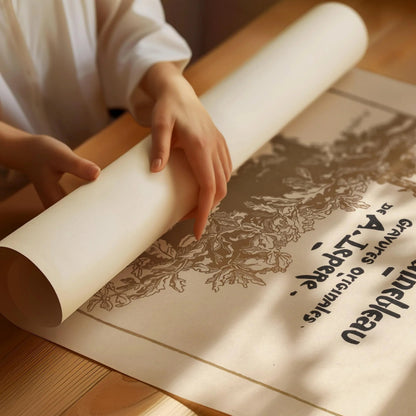 inebleau
Gravures originales.
DE A. Lepère.